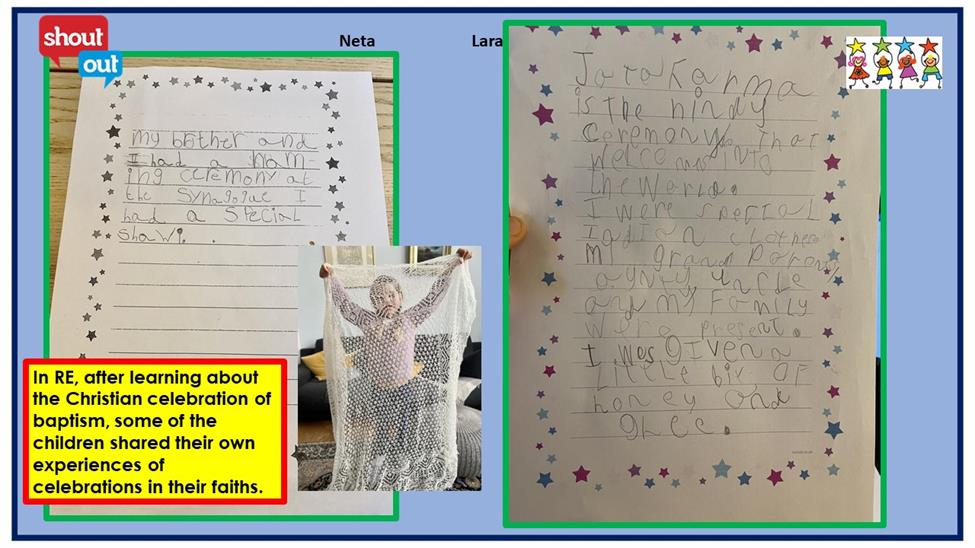 shout
out
Neta
Lara
my brother and
I had a nam-
ing ceremony at
the Synagogue I
had a special
shawl.
In RE, after learning about
the Christian celebration of
baptism, some of the
children shared their own
experiences of
celebrations in their faiths.
Jata Karma
is the hindy
ceremony that
welcoms into
the world.
I were special
Indian clothes
My grand Parents
aynty uncle
any my Family
were present.
I wes given a
Little bit of
honey and
ghee.